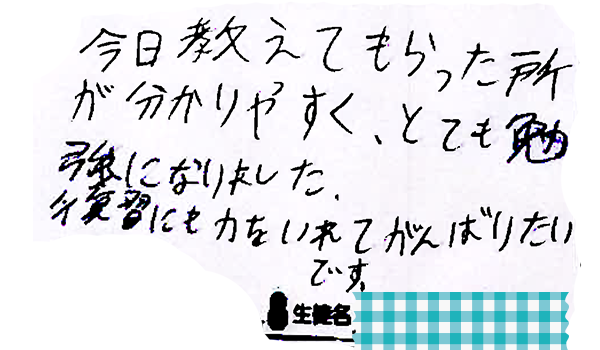 今日教えてもらった所
が分かりやすく、とても勉
強になりました。
復習にも力をいれてがんばりたい
です。
生徒名